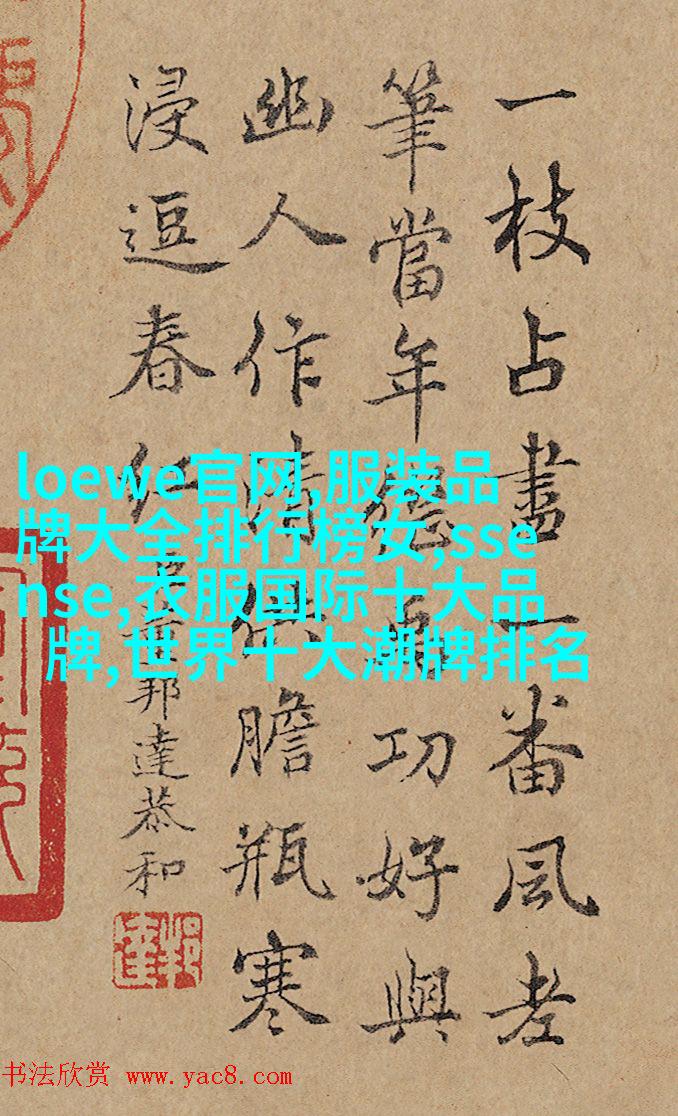 一枝占盡一番風老
筆當年功好與
幽人作清供膽瓶寒
浸逗春紅臣董邦達恭和
loewe官网,服装品
牌大全排行榜女,sse
nse,衣服国际十大品
牌,世界十大潮牌排名
书法欣赏 www.yac8.com